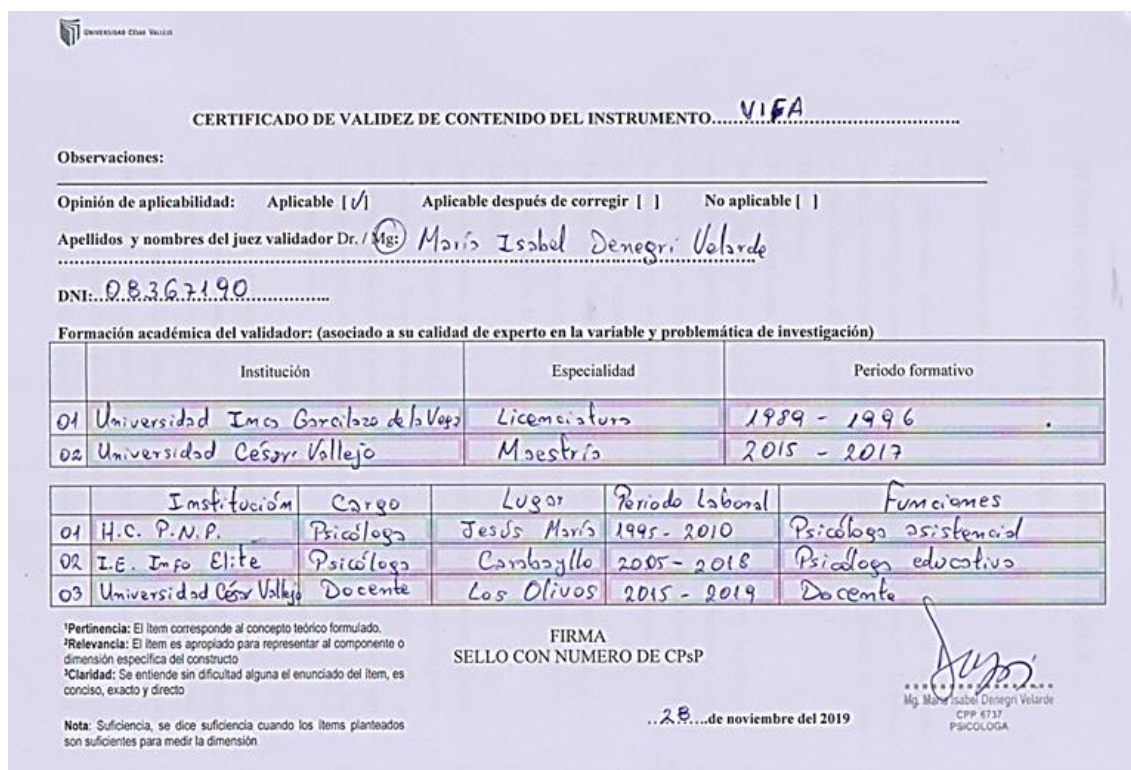 UNIVERSIDAD CÉSAR VALLEJO
CERTIFICADO DE VALIDEZ DE CONTENIDO DEL INSTRUMENTO....VIFA....
Observaciones:
Opinión de aplicabilidad: Aplicable [√] Aplicable después de corregir [ ] No aplicable [ ]
Apellidos y nombres del juez validador Dr. / Mg: María Isabel Denegri Velarde
DNI:..08367190................
Formación académica del validador: (asociado a su calidad de experto en la variable y problemática de investigación)
Institución Especialidad Periodo formativo
01 Universidad Inca Garcilazo de la Vega Licenciatura 1989 - 1996
02 Universidad César Vallejo Maestría 2015 - 2017
Institución Cargo Lugar Periodo Laboral Funciones
01 H.C. P.N.P. Psicóloga Jesús María 1995 - 2010 Psicóloga asistencial
02 I.E. Info Elite Psicóloga Carabayllo 2005 - 2018 Psicóloga educativa
03 Universidad César Vallejo Docente Los Olivos 2015 - 2019 Docente
¹Pertinencia: El ítem corresponde al concepto teórico formulado.
²Relevancia: El ítem es apropiado para representar al componente o
dimensión específica del constructo
³Claridad: Se entiende sin dificultad alguna el enunciado del ítem, es
conciso, exacto y directo
Nota: Suficiencia, se dice suficiencia cuando los ítems planteados
son suficientes para medir la dimensión
FIRMA
SELLO CON NUMERO DE CPsP
..28....de noviembre del 2019
Mg. María Isabel Denegri Velarde
CPP 6737
PSICOLOGA